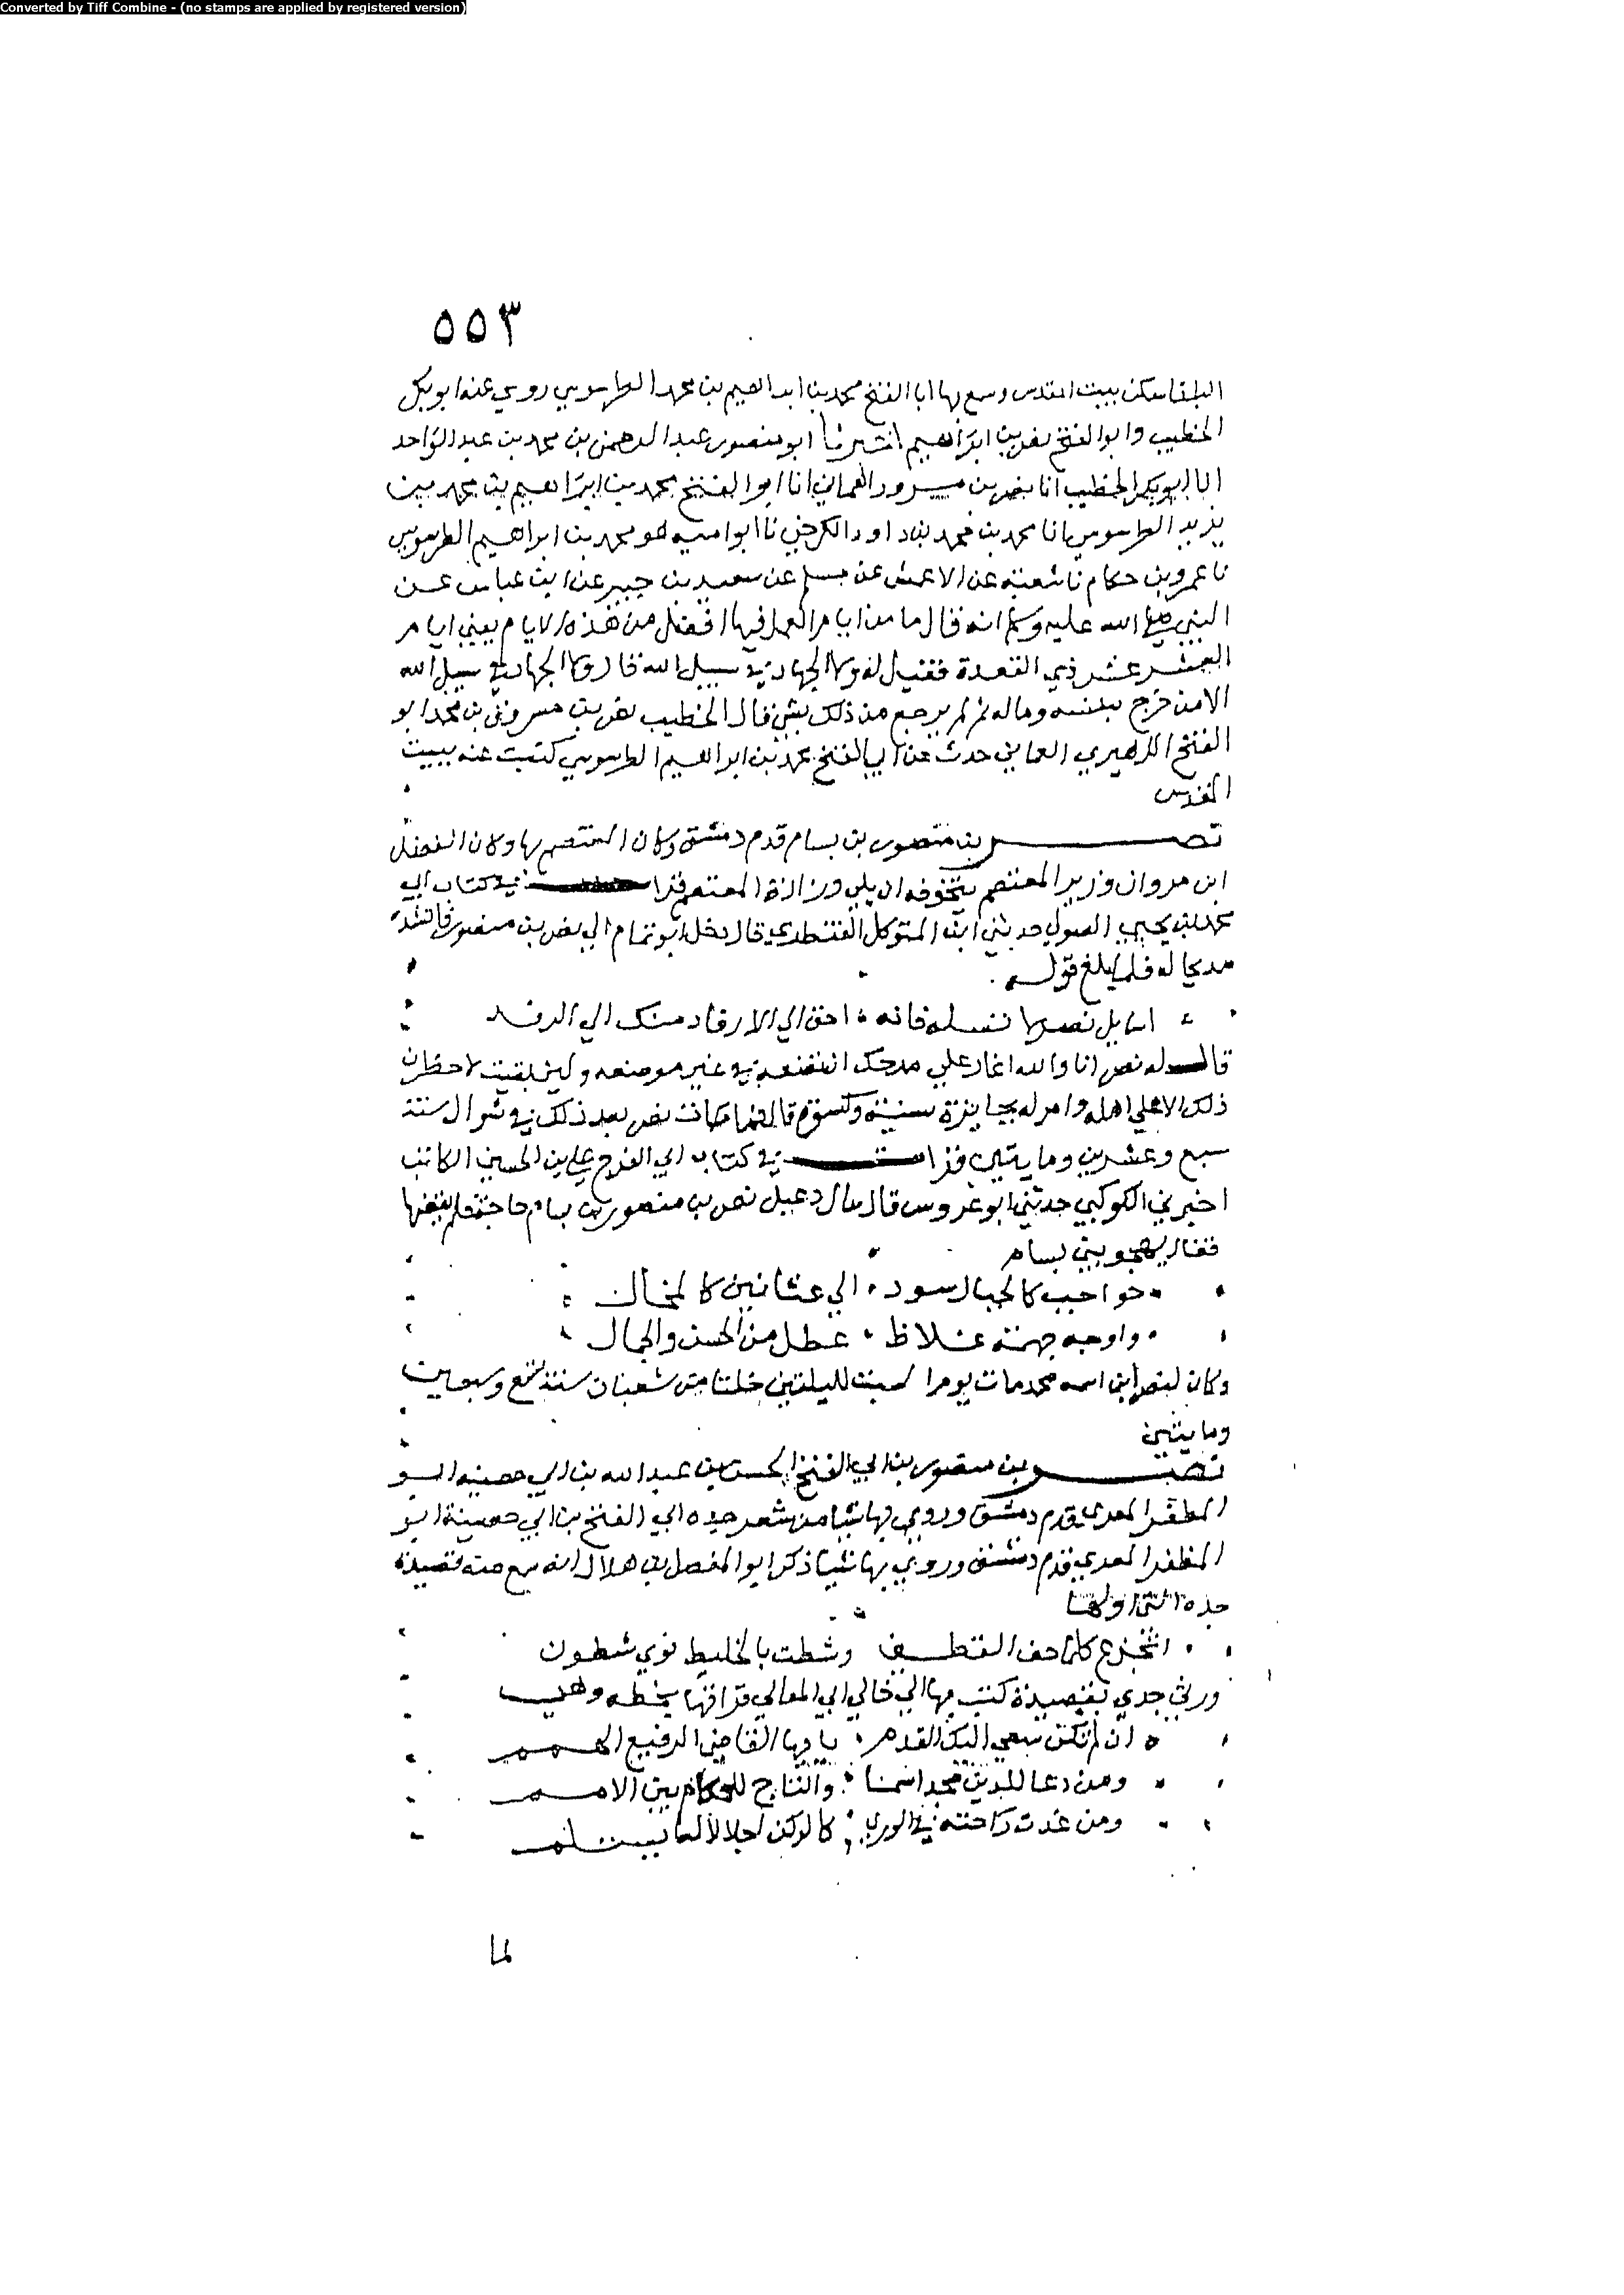 Converted by Tiff Combine - (no stamps are applied by registered version)
٥٥٣
البلقا سكن ببيت المقدس وسمع بها ابا الفتح محمد بن ابراهيم بن محمد الطرسوسي روي عنه ابو بكر
الخطيب وابو الفتح نصر بن ابراهيم اخبرنا ابو منصور عبد الرحمن بن محمد بن عبد الواحد
انا ابو بكر الخطيب انا نصر بن مسرور العماني انا ابو الفتح محمد بن ابراهيم بن محمد بن
يزيد الطرسوسي انا محمد بن محمد بن داود الكرخي نا ابو اميه هو محمد بن ابراهيم الطرسوسي
نا عمرو بن حكام نا شعبة عن الاعمش عن مسلم عن سعيد بن جبير عن ابن عباس عن
النبي صلي الله عليه وسلم انه قال ما من ايام العمل فيها افضل من هذه الايام يعني ايام
العشر عشر ذي القعدة فقيل له ولا الجهاد في سبيل الله قال ولا الجهاد في سبيل الله
الا من خرج بنفسه وماله ثم لم يرجع من ذلك بشي قال الخطيب نصر بن مسرور بن محمد ابو
الفتح الزهيري العماني حدث عن ابي الفتح محمد بن ابراهيم الطرسوسي كتبت عنه ببيت
المقدس
نصر بن منصور بن بسام قدم دمشق وكان المعتصم بها وكان الفضل
ابن مروان وزير المعتصم يتخوفه ان يلي وزارة المعتصم قرات في كتاب ابي
محمد بن يحيي الصولي حدثني ابن المتوكل القنطري قال دخل ابو تمام الي نصر بن منصور فانشده
مديحا له فلما بلغ قوله
اسايل نصر لا تسله فانه احن الي الارفاد منك الي الرفد
قال له نصر انا والله اغار علي مدحك ان تضعه في غير موضعه ولين بقيت لاحظرن
ذلك الا علي اهله وامر له بجايزة سنية وكسوة قال فمات نصر بعد ذلك في شوال سنة
سبع وعشرين ومايتين قرات في كتاب ابي الفرج علي بن الحسين الكاتب
اخبرني الكوكبي حدثني ابو غروس قال سال دعبل نصر بن منصور بن بسام حاجة فلم يقضها
فقال يهجو بني بسام
حواجب كالجبال سود الي عثانين كالمخال
واوجه جهمة غلاظ عطل من الحسن والجمال
وكان لنصر ابن اسمه محمد مات يوم السبت لليلتين خلتا من شعبان سنة تسع وسبعين
ومايتين
نصر بن منصور بن ابي الفتح الحسن بن عبد الله بن ابي حصينة ابو
المظفر المعري قدم دمشق وروي بها شيا من شعر جده ابي الفتح بن ابي حصينة ابو
المظفر المعري قدم دمشق وروي بها شيا ذكر ابو المفضل بن هلال انه سمع منه قصيدة
جده التي اولها
وشطت بالخليط نوي شطون
ورثي جدي بقصيدة كتب بها الي خالي ابي المعالي قراتها بخطه وهي
ان لم تكن سعي اليك القدم يا ايها القاضي الرفيع الهمم
ومن دعا للدين مجدا سما والتاج للحكام بين الامم
ومن غدت راحته في الوري كالركن اجلالا لها يستلم
لما